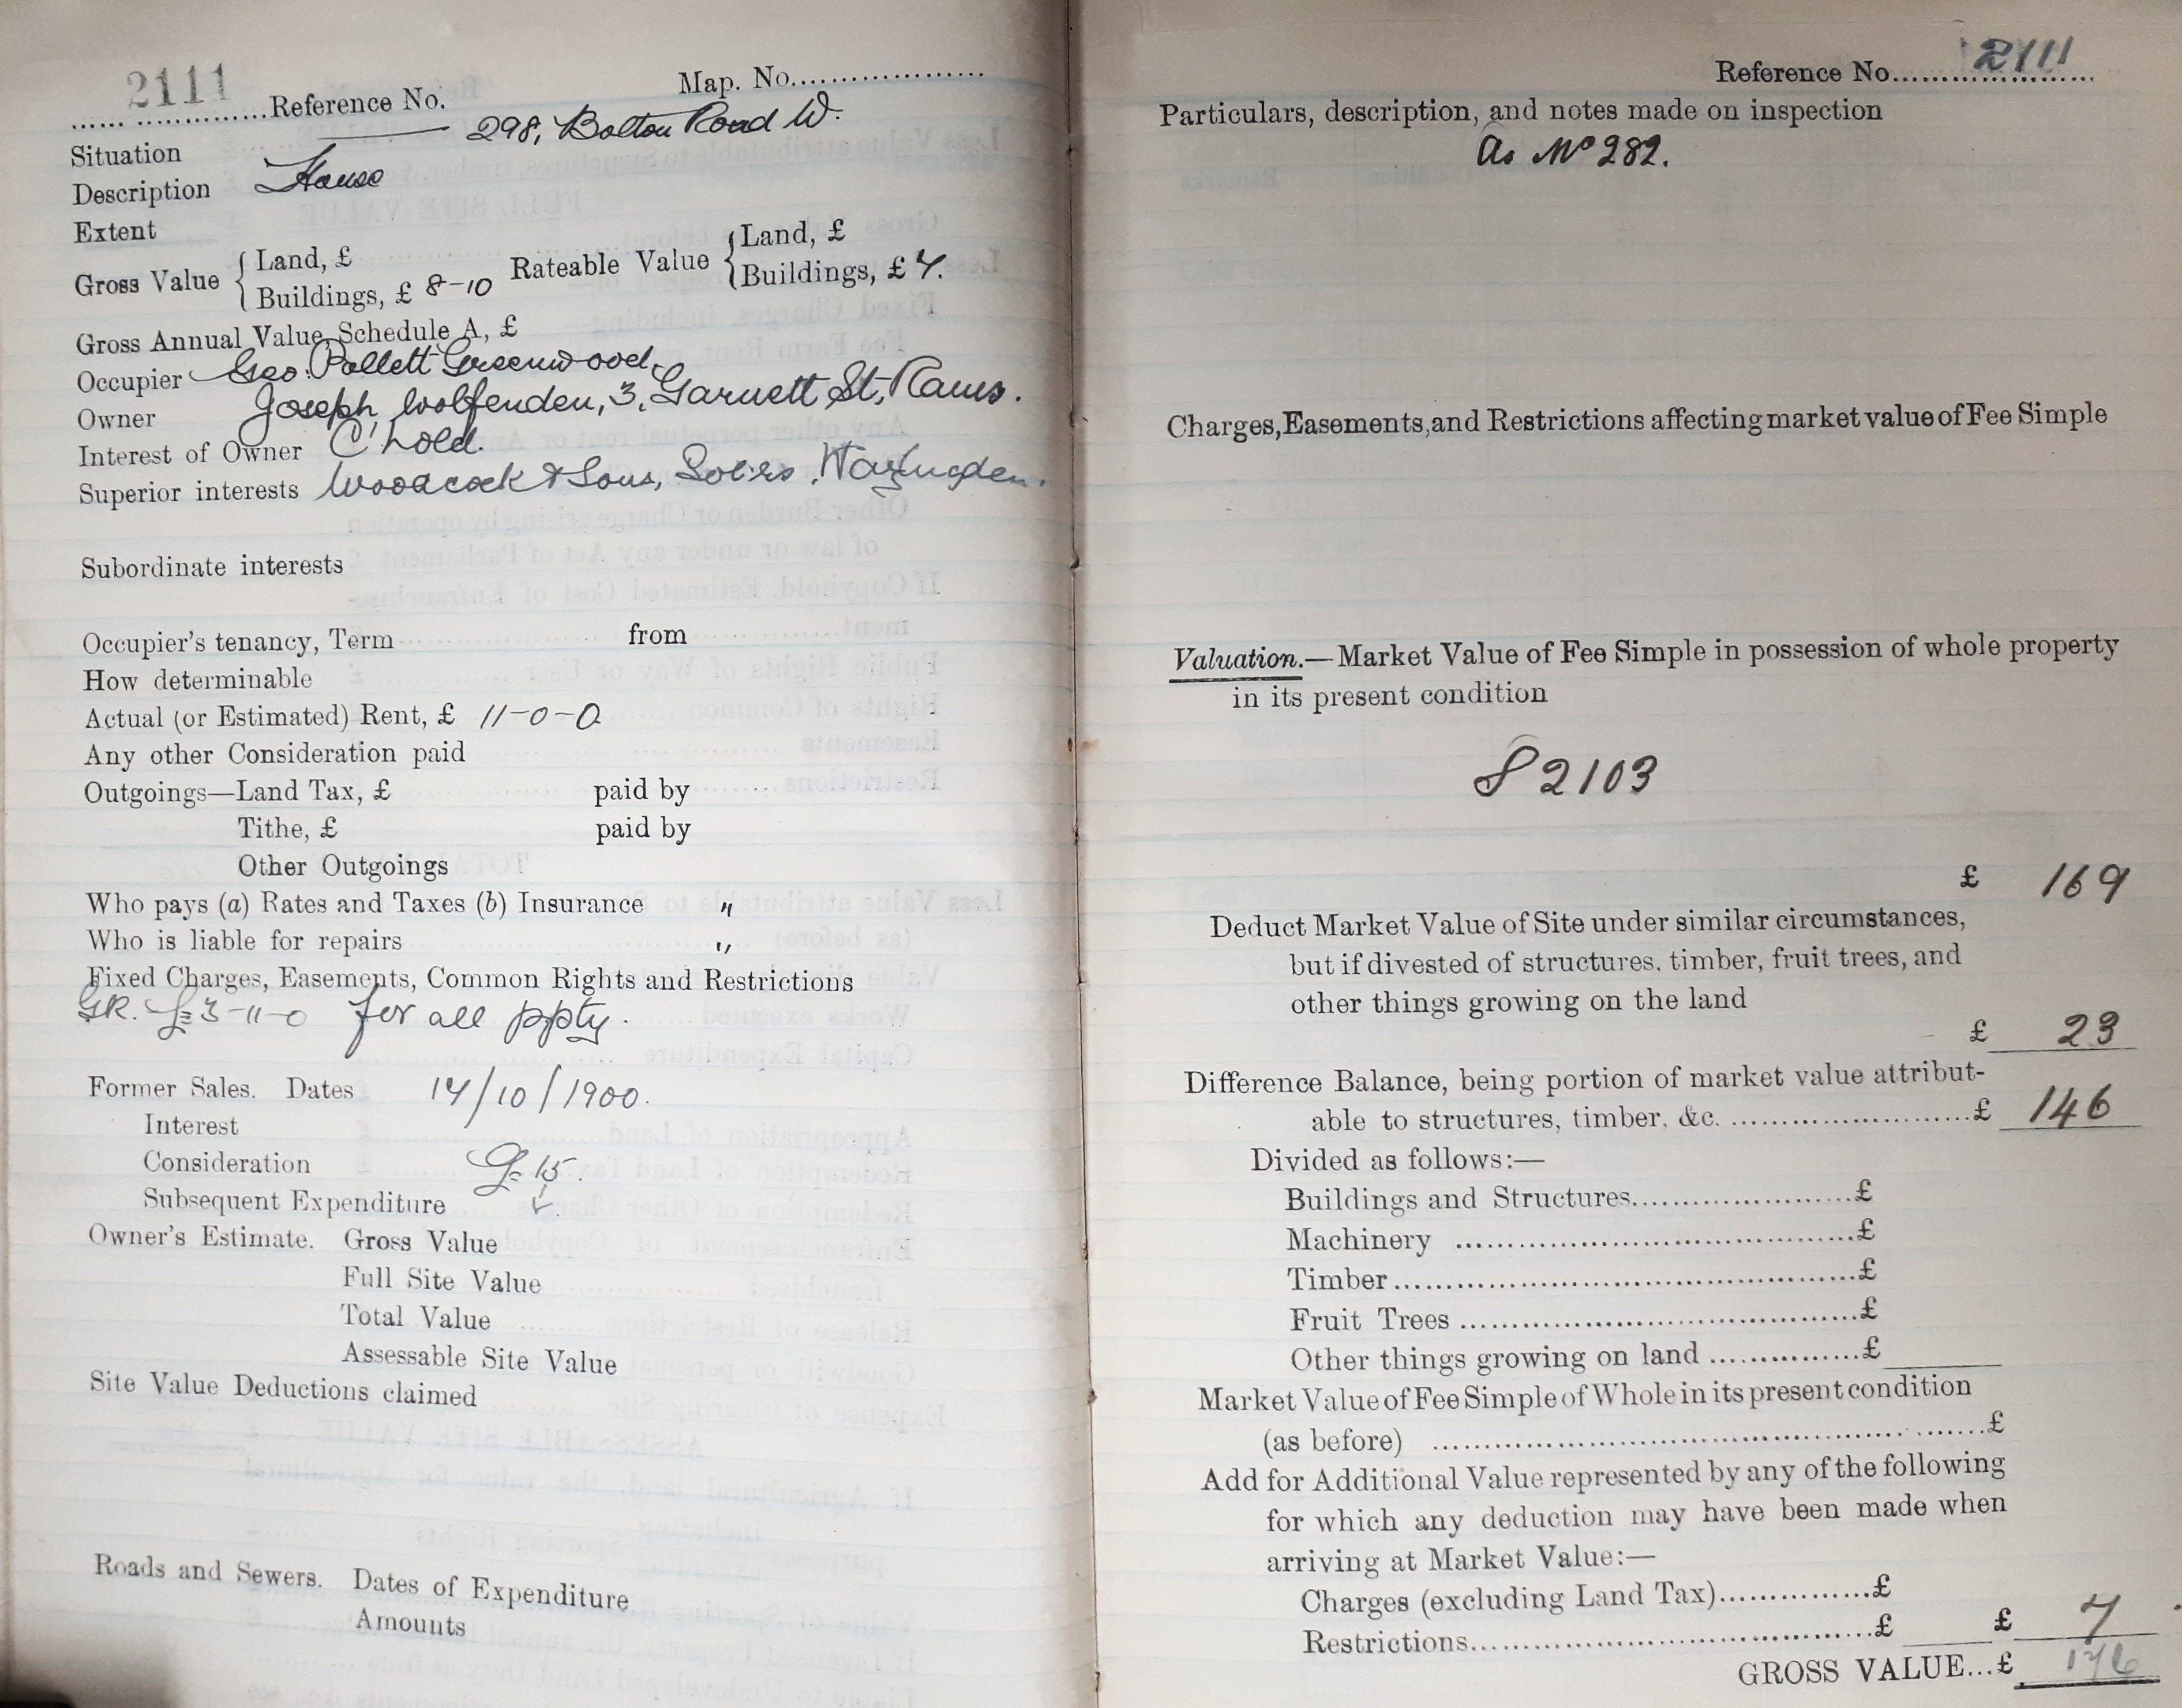 2111 Reference No. Map. No.
Situation 298, Bolton Road W.
Description House
Extent
Gross Value { Land, £ Rateable Value { Land, £
Buildings, £ 8-10 Buildings, £ 7.
Gross Annual Value, Schedule A, £
Occupier Geo. Pollett Greenwood,
Owner Joseph Wolfenden, 3, Garnett St, Rams.
Interest of Owner C'hold.
Superior interests Woodcock & Sons, Solrs, Haslingden.
Subordinate interests
Occupier's tenancy, Term from
How determinable
Actual (or Estimated) Rent, £ 11-0-0
Any other Consideration paid
Outgoings—Land Tax, £ paid by
Tithe, £ paid by
Other Outgoings
Who pays (a) Rates and Taxes (b) Insurance "
Who is liable for repairs "
Fixed Charges, Easements, Common Rights and Restrictions
GR. £3-11-0 for all ppty.
Former Sales. Dates 14/10/1900.
Interest
Consideration £ 15.
Subsequent Expenditure
Owner's Estimate. Gross Value
Full Site Value
Total Value
Assessable Site Value
Site Value Deductions claimed
Roads and Sewers. Dates of Expenditure
Amounts
Reference No. 2111
Particulars, description, and notes made on inspection
As No 282.
Charges, Easements, and Restrictions affecting market value of Fee Simple
Valuation.—Market Value of Fee Simple in possession of whole property
in its present condition
2103
£ 169
Deduct Market Value of Site under similar circumstances,
but if divested of structures, timber, fruit trees, and
other things growing on the land
£ 23
Difference Balance, being portion of market value attribut-
able to structures, timber, &c. £ 146
Divided as follows:—
Buildings and Structures £
Machinery £
Timber £
Fruit Trees £
Other things growing on land £
Market Value of Fee Simple of Whole in its present condition
(as before) £
Add for Additional Value represented by any of the following
for which any deduction may have been made when
arriving at Market Value:—
Charges (excluding Land Tax) £
Restrictions £ £ 7
GROSS VALUE...£ 176